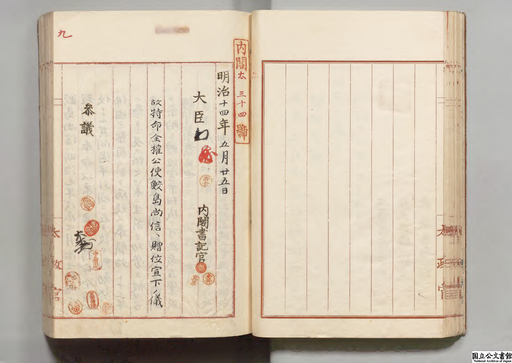 九
内閣 太 三十四
明治十四年五月廿五日
大臣
内閣書記官
故特命全権公使鮫島尚信ヘ贈位宣下ノ儀
参議
太政官
太政官
国立公文書館
National Archives of Japan